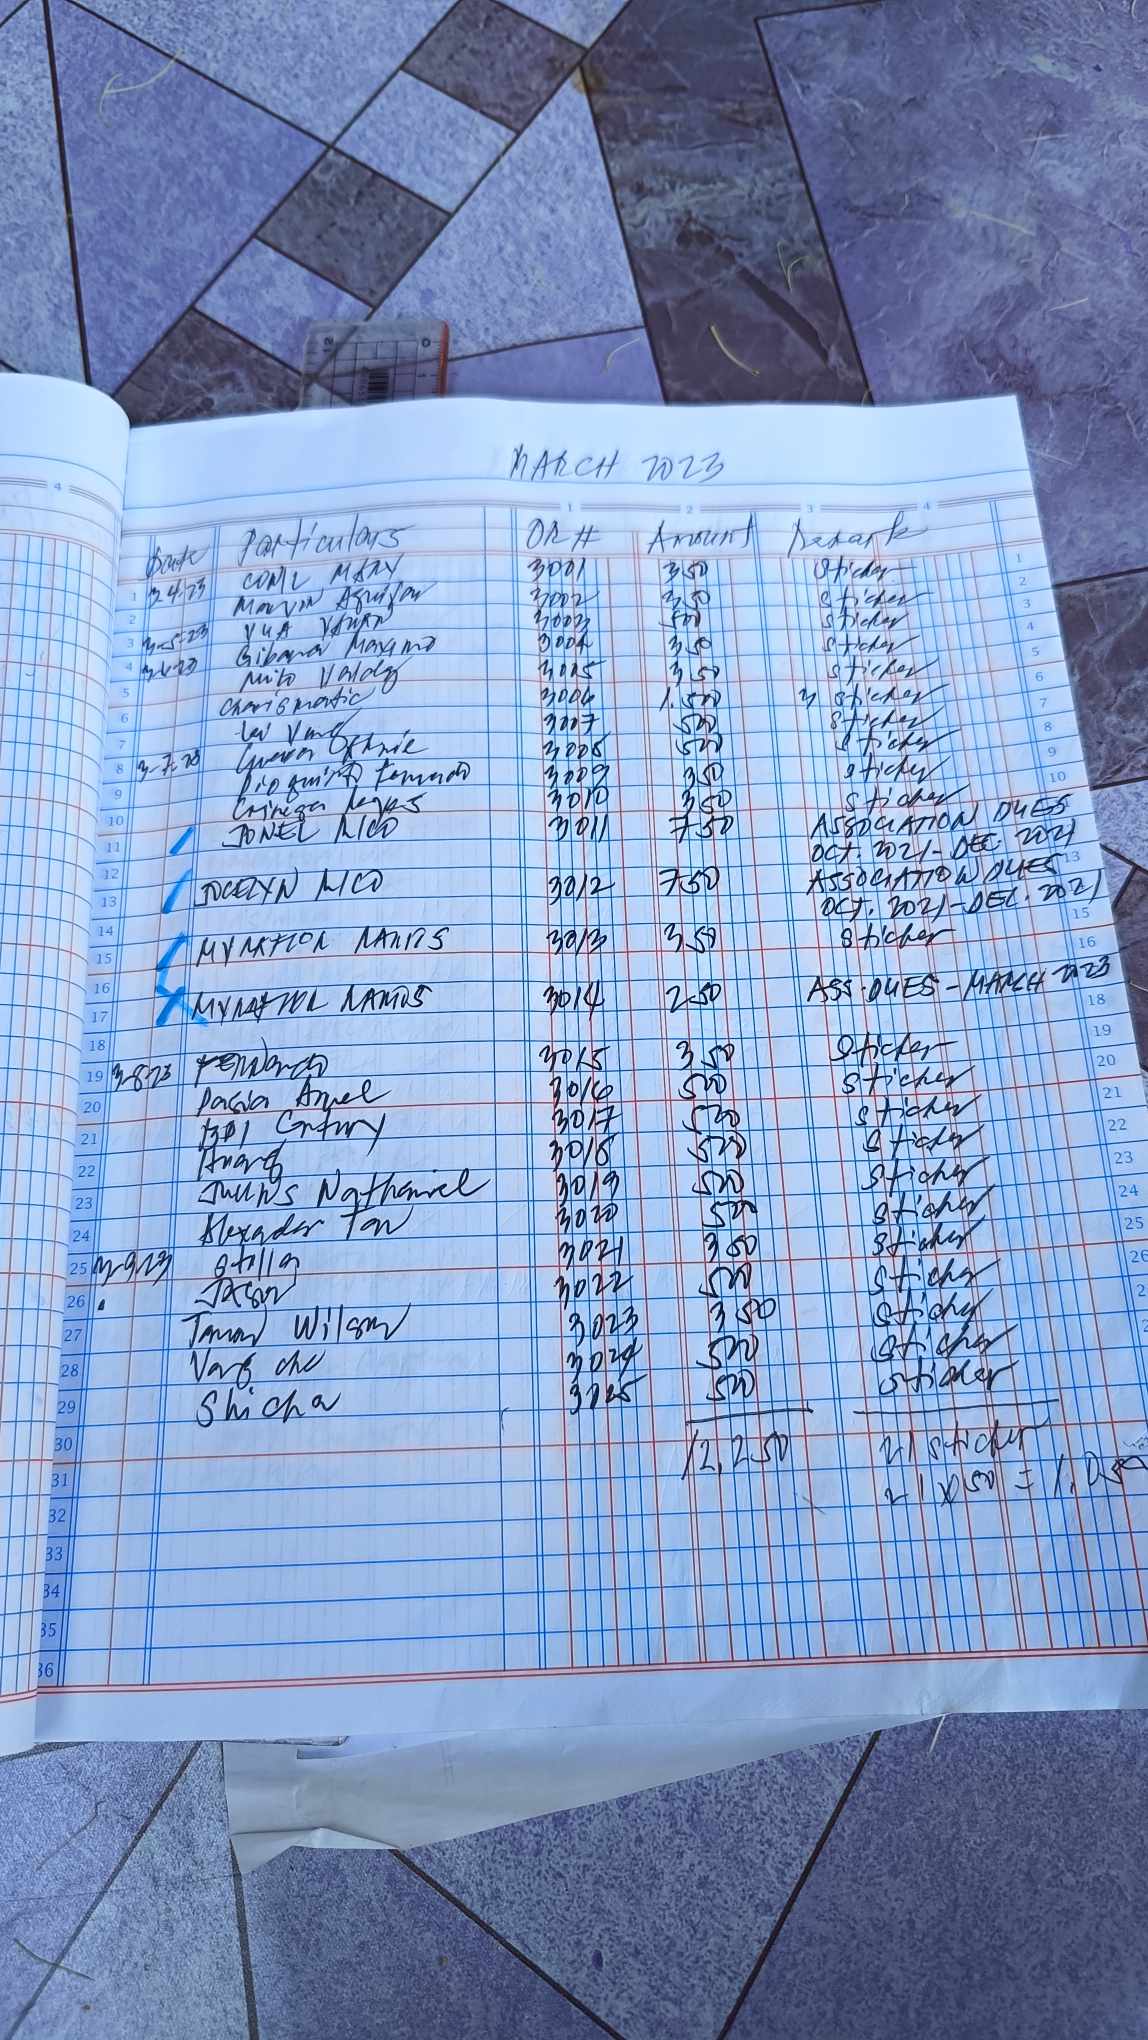 MARCH 2023
Date Particulars OR# Amount Remark
3-4-23 3001 350 Sticker
Marvin 3002 350 Sticker
3-5-23 3003 500 Sticker
3-6-23 Maximo 3004 350 Sticker
Valdez 3005 350 Sticker
Charismatic 3006 1,500 3 Sticker
3007 500 Sticker
3-7-23 3008 500 Sticker
3009 350 Sticker
3010 350 Sticker
JONEL RICO 3011 750 ASSOCIATION DUES
OCT. 2021-DEC. 2021
JOCELYN RICO 3012 750 ASSOCIATION DUES
OCT. 2021-DEC. 2021
RAMOS 3013 350 Sticker
RAMOS 3014 250 ASS. DUES-MARCH 2023
3-8-23 Fernando 3015 350 Sticker
3016 500 Sticker
Century 3017 500 Sticker
Huang 3018 500 Sticker
Nathaniel 3019 500 Sticker
Alexander Tan 3020 500 Sticker
3-9-23 Stella 3021 350 Sticker
Jason 3022 500 Sticker
Wilson 3023 350 Sticker
3024 500 Sticker
Shicha 3025 500 Sticker
12,250 21 sticker
21 x 50 = 1,050